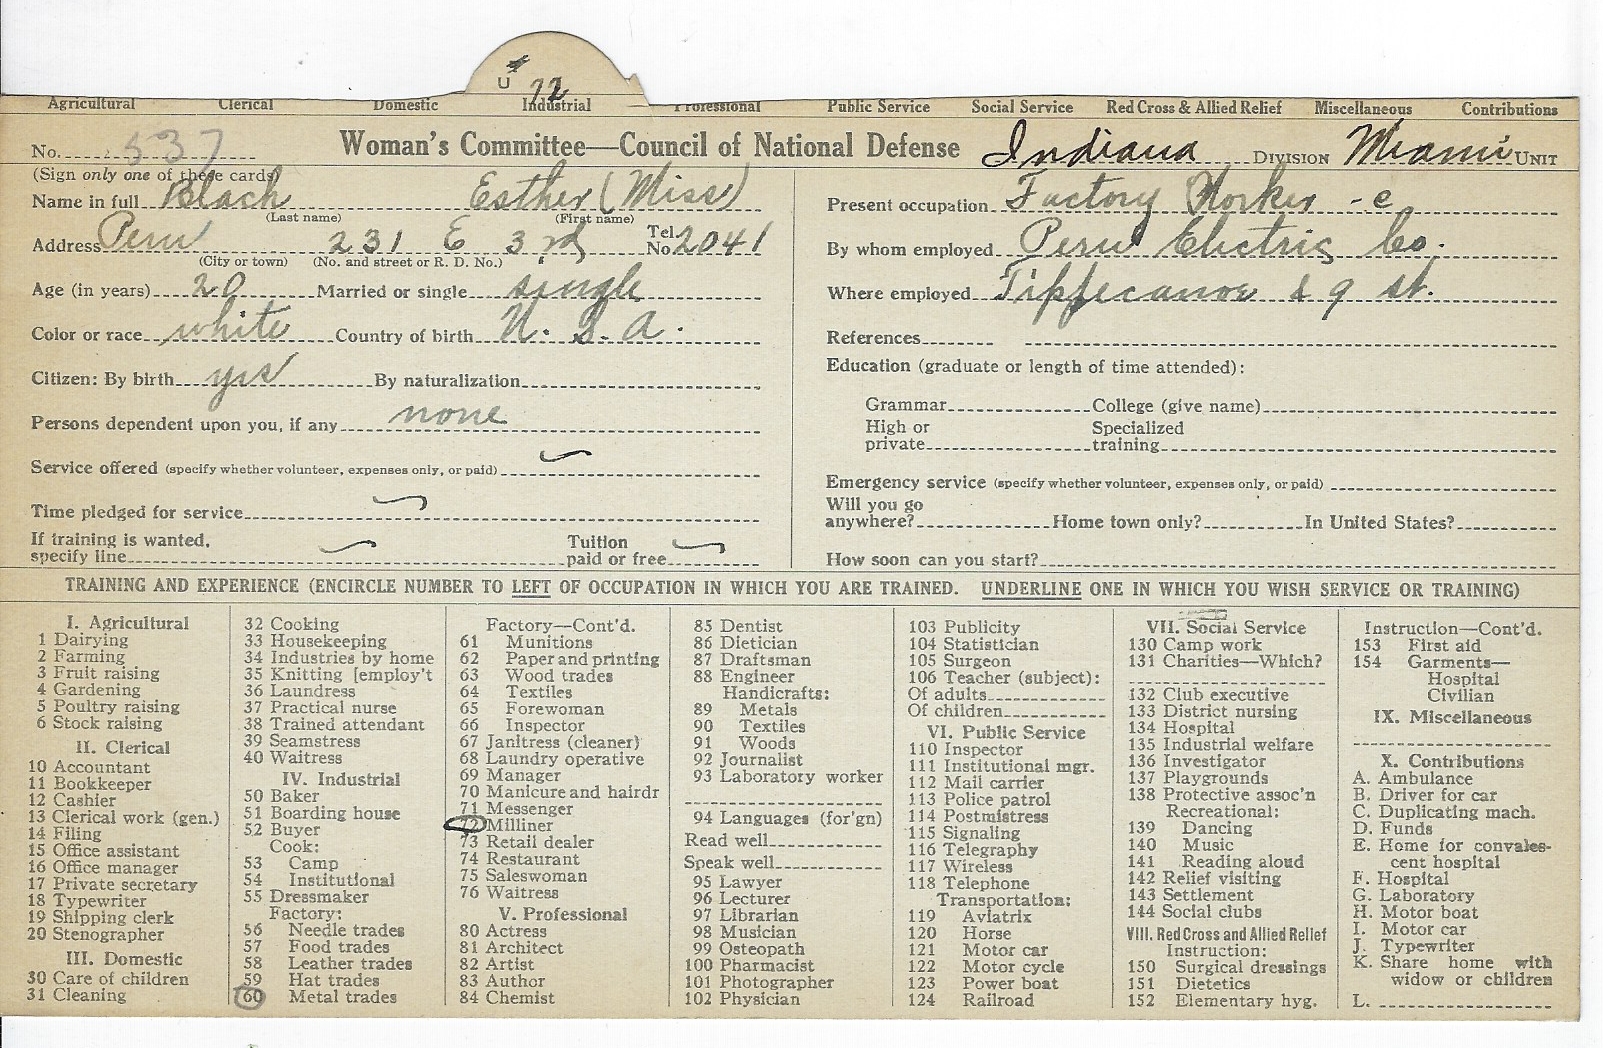 U 72
Agricultural Clerical Domestic Industrial Professional Public Service Social Service Red Cross & Allied Relief Miscellaneous Contributions
No. 537 Woman's Committee—Council of National Defense Indiana DIVISION Miami UNIT
(Sign only one of these cards)
Name in full Black Esther (Miss)
(Last name) (First name)
Address Peru 231 E 3rd Tel. No. 2041
(City or town) (No. and street or R. D. No.)
Age (in years) 20 Married or single single
Color or race white Country of birth U. S. A.
Citizen: By birth yes By naturalization
Persons dependent upon you, if any none
Service offered (specify whether volunteer, expenses only, or paid)
Time pledged for service
If training is wanted, specify line Tuition paid or free
Present occupation Factory Worker - c
By whom employed Peru Electric Co.
Where employed Tippecanoe & 9 st.
References
Education (graduate or length of time attended):
Grammar College (give name)
High or private Specialized training
Emergency service (specify whether volunteer, expenses only, or paid)
Will you go anywhere? Home town only? In United States?
How soon can you start?
TRAINING AND EXPERIENCE (ENCIRCLE NUMBER TO LEFT OF OCCUPATION IN WHICH YOU ARE TRAINED. UNDERLINE ONE IN WHICH YOU WISH SERVICE OR TRAINING)
I. Agricultural
1 Dairying
2 Farming
3 Fruit raising
4 Gardening
5 Poultry raising
6 Stock raising
II. Clerical
10 Accountant
11 Bookkeeper
12 Cashier
13 Clerical work (gen.)
14 Filing
15 Office assistant
16 Office manager
17 Private secretary
18 Typewriter
19 Shipping clerk
20 Stenographer
III. Domestic
30 Care of children
31 Cleaning
32 Cooking
33 Housekeeping
34 Industries by home
35 Knitting [employ't
36 Laundress
37 Practical nurse
38 Trained attendant
39 Seamstress
40 Waitress
IV. Industrial
50 Baker
51 Boarding house
52 Buyer
Cook:
53 Camp
54 Institutional
55 Dressmaker
Factory:
56 Needle trades
57 Food trades
58 Leather trades
59 Hat trades
60 Metal trades
Factory—Cont'd.
61 Munitions
62 Paper and printing
63 Wood trades
64 Textiles
65 Forewoman
66 Inspector
67 Janitress (cleaner)
68 Laundry operative
69 Manager
70 Manicure and hairdr
71 Messenger
72 Milliner
73 Retail dealer
74 Restaurant
75 Saleswoman
76 Waitress
V. Professional
80 Actress
81 Architect
82 Artist
83 Author
84 Chemist
85 Dentist
86 Dietician
87 Draftsman
88 Engineer
Handicrafts:
89 Metals
90 Textiles
91 Woods
92 Journalist
93 Laboratory worker
94 Languages (for'gn)
Read well
Speak well
95 Lawyer
96 Lecturer
97 Librarian
98 Musician
99 Osteopath
100 Pharmacist
101 Photographer
102 Physician
103 Publicity
104 Statistician
105 Surgeon
106 Teacher (subject):
Of adults
Of children
VI. Public Service
110 Inspector
111 Institutional mgr.
112 Mail carrier
113 Police patrol
114 Postmistress
115 Signaling
116 Telegraphy
117 Wireless
118 Telephone
Transportation:
119 Aviatrix
120 Horse
121 Motor car
122 Motor cycle
123 Power boat
124 Railroad
VII. Social Service
130 Camp work
131 Charities—Which?
132 Club executive
133 District nursing
134 Hospital
135 Industrial welfare
136 Investigator
137 Playgrounds
138 Protective assoc'n
Recreational:
139 Dancing
140 Music
141 Reading aloud
142 Relief visiting
143 Settlement
144 Social clubs
VIII. Red Cross and Allied Relief
Instruction:
150 Surgical dressings
151 Dietetics
152 Elementary hyg.
Instruction—Cont'd.
153 First aid
154 Garments—
Hospital
Civilian
IX. Miscellaneous
X. Contributions
A. Ambulance
B. Driver for car
C. Duplicating mach.
D. Funds
E. Home for convales-
cent hospital
F. Hospital
G. Laboratory
H. Motor boat
I. Motor car
J. Typewriter
K. Share home with
widow or children
L.